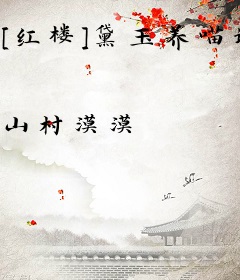 [红楼]黛玉养喵
山村漠漠